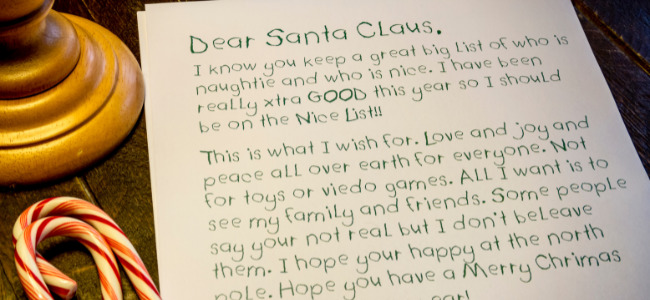 Dear Santa Claus,
I know you keep a great big List of who is
naughtie and who is nice. I have been
really xtra GOOD this year so I should
be on the Nice List!!!
This is what I wish for. Love and joy and
peace all over earth for everyone. Not
for toys or viedo games. ALL I want is to
see my family and friends. Some people
say your not real but I don't beleave
them. I hope your happy at the north
pole. Hope you have a Merry Chrirmas